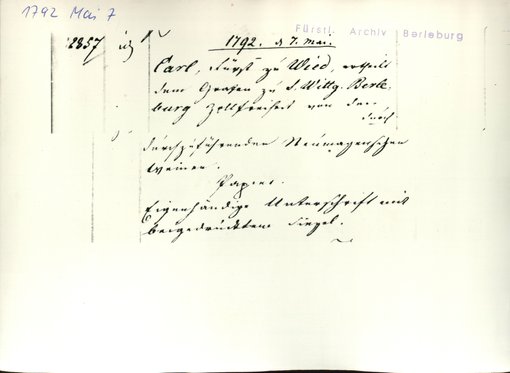 1792 Mai 7
Fürstl. Archiv Berleburg
2857
1792. d 7. Mai.
Carl, Fürst zu Wied, ertheilt
dem Grafen zu S. Wittg. Berle-
burg Zollfreiheit von den
durch-
durchzuführenden Neumagenschen
Weinen.
Papier.
Eigenhändige Unterschrift mit
beigedrücktem Siegel.